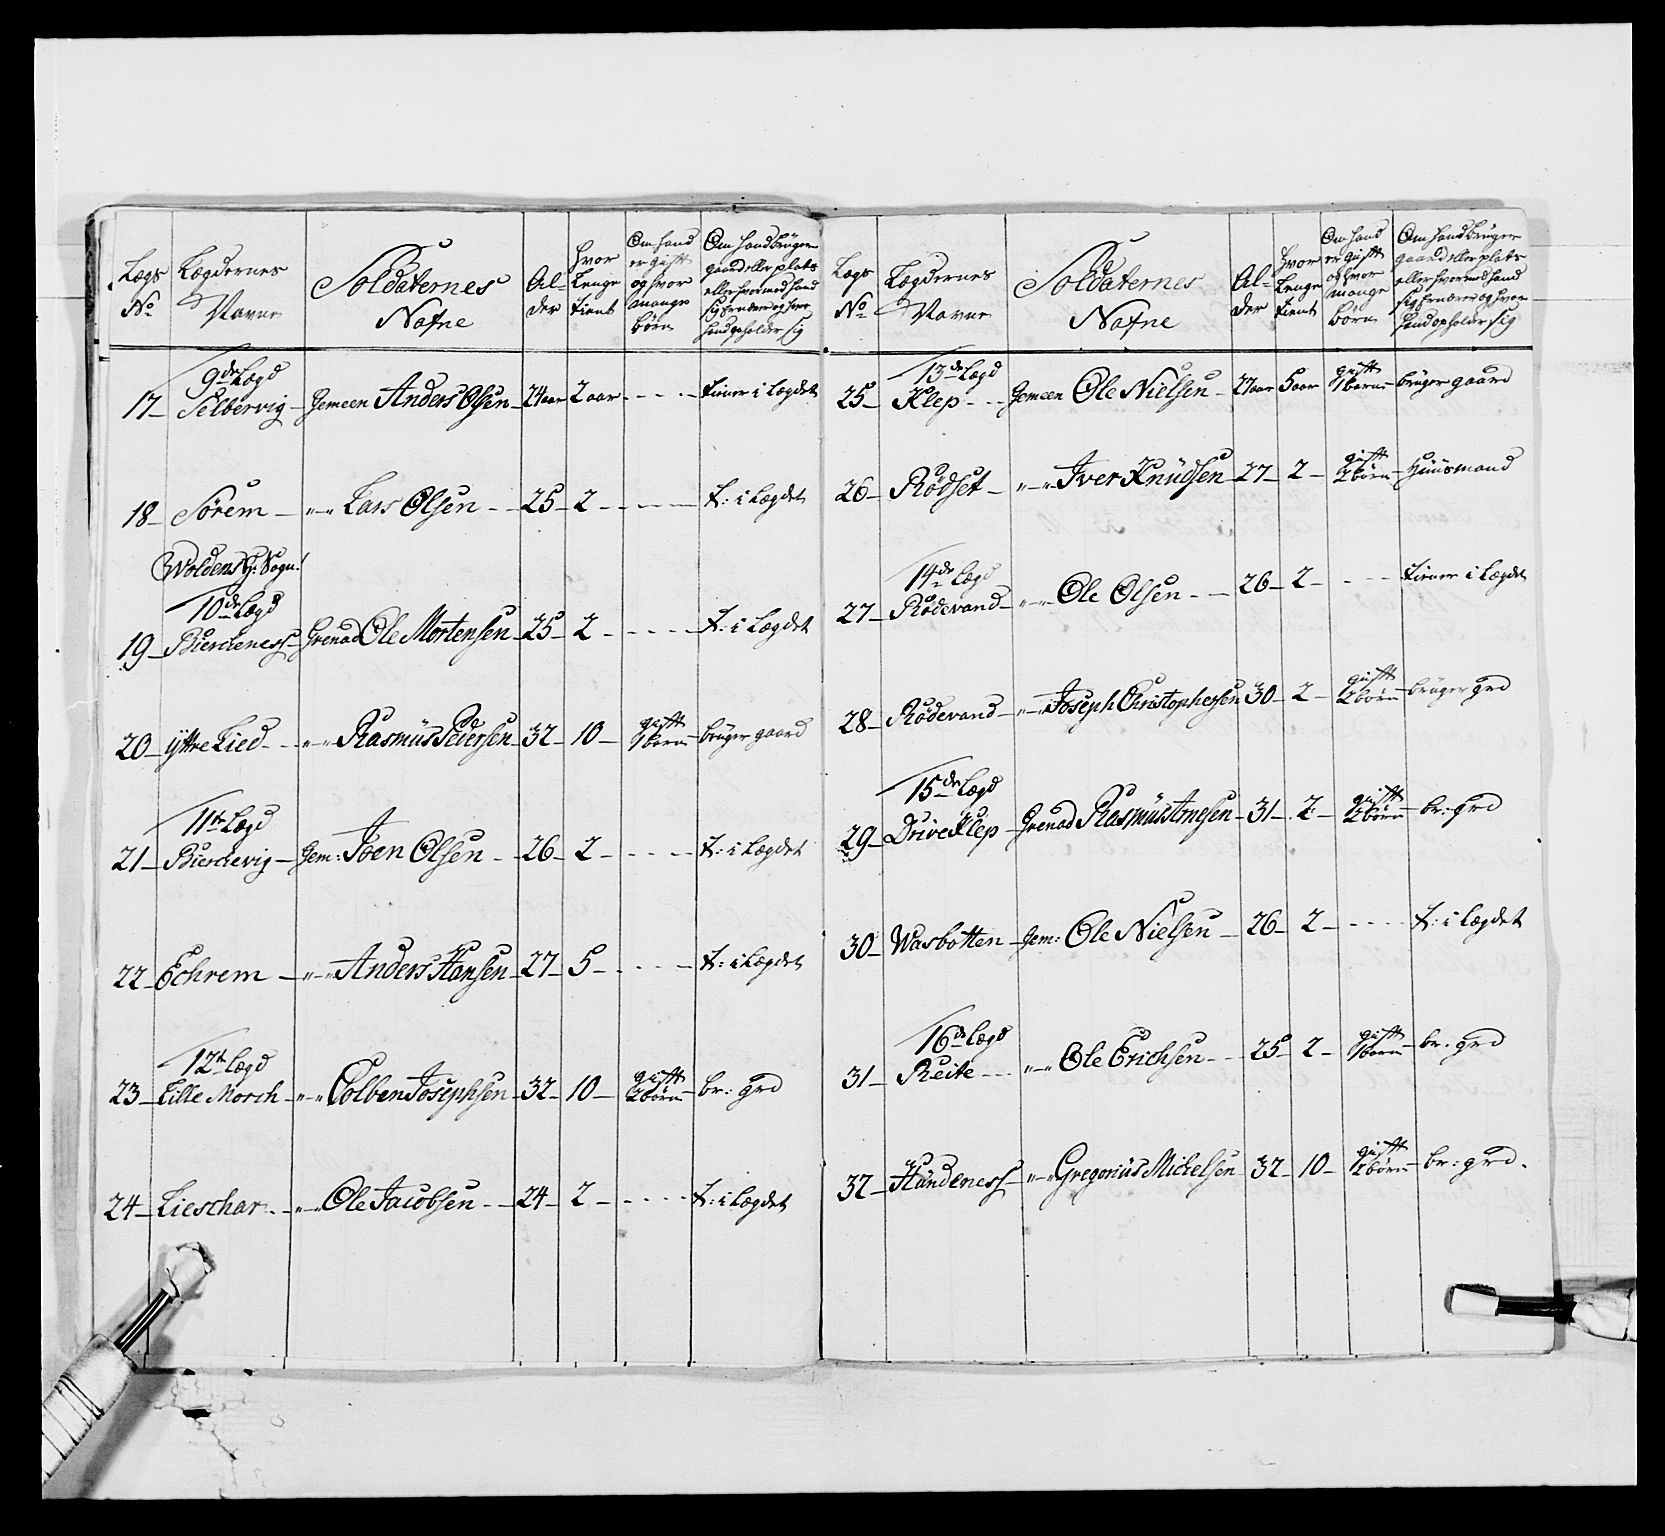 Lægs No
Lægdernes Navne
Soldaternes Nafne
Alder
Hvor Lenge tient
Om hand er gift og hvor mange børn
Om hand brüger gaard eller plats eller hvormed hand sig Ernærer og hvor hand opholder sig
9de Lægd
17 – Selbervig – Gemeen Anders Olsen – 24 aar – 2 aar - - - - tiener i Lægdet
18 – Sörem – " – " Lars Olsen – 25 – 2 - - - - t: i Lægdet
Woldens H: Sogn!
10de Lægd
19 – Bierchness – Grenad Ole Mortensen – 25 – 2 - - - - t: i Lægdet
20 – Yttre Lied - - " – " Rasmüs Pedersen – 32 – 10 – gift 1 barn – brüger gaard
11te Lægd
21 – Bierchevig – Gem: Joen Olsen - - 26 – 2 - - - - t: i Lægdet
22 – Echrem – " – " Anders Hansen – 27 – 5 - - - - t: i Lægdet
12te Lægd
23 – Lille Morch – " – " Colben Josephsen – 32 – 10 – gift 2 börn – br: grd
24 – Lieschar - - " – " Ole Jacobsen - - 24 – 2 - - - - t: i Lægdet
Lægs No
Lægdernes Navne
Soldaternes Nafne
Alder
Hvor Lenge tient
Om hand er gift og hvor mange börn
Om hand brüger gaard eller plats eller hvormed hand sig Ernærer og hvor hand opholder sig
13de Lægd
25 – Klep - - Gemeen Ole Nielsen – 27 aar – 5 aar gift 1 barn – brüger gaard
26 – Rödset – " – " Iver Knüdsen – 27 – 2 – gift 2 börn – Hüüsmand
14de Lægd
27 – Rödevand – " – " Ole Olsen - - 26 – 2 - - - - tiener i Lægdet
28 – Rödevand – " – " Joseph Christophersen 30 – 2 – gift 2 börn – brüger grd
15de Lægd
29 – Drive Klep – Grenad Rasmüs Arnesen – 31 – 2 – gift 2 börn – br: grd
30 – Wasbotten – Gem: Ole Nielsen – 26 – 2 - - - - t: i Lægdet
16de Lægd
31 – Reite - - " – " Ole Erichsen - - 25 – 2 – gift 1 barn – br. grd
32 – Hündeness – " – " Gregoriüs Michelsen 32 – 10 – gift 2 börn – br: grd.